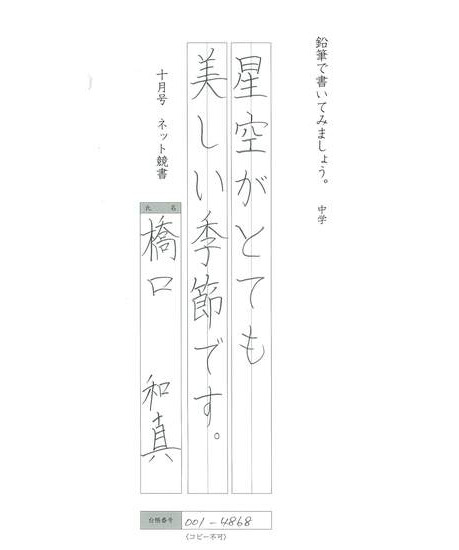 鉛筆で書いてみましょう。 中学
星空がとても
美しい季節です。
十月号 ネット競書
氏 名
橋口 和真
台帳番号 001-4868
(コピー不可)